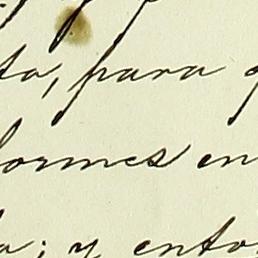 ta, para q
formes en
a; y enton